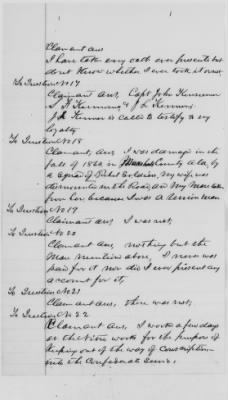 Claimant Ans
I have take any oath ever presents but
dont Know whether I ever took it or not
To Question No 17
Claimant Ans, Capt John
S. F. &
J L is calls to testify to my
loyalty
To Question No 18
Claimant, Ans I was damage in the
fall of 1862 in County Ala, by
a of Rebel Soldiers, My wife was
dismounts in the Road, and My Mare taken
from her because I was a Union man
To Question No 19
Claimant ans, I was not,
To Question No 20
Claimant Ans, nothing but the
Mare mention above, I never was
paid for it nor did I ever present any
account for it,
To Question No 21
Claimant Ans, there was not,
To Question No 22
Claimant Ans, I works a few days
at the Nitre works for the purpose of
Keeping out of the way of Conscription
into the Confederate Service,